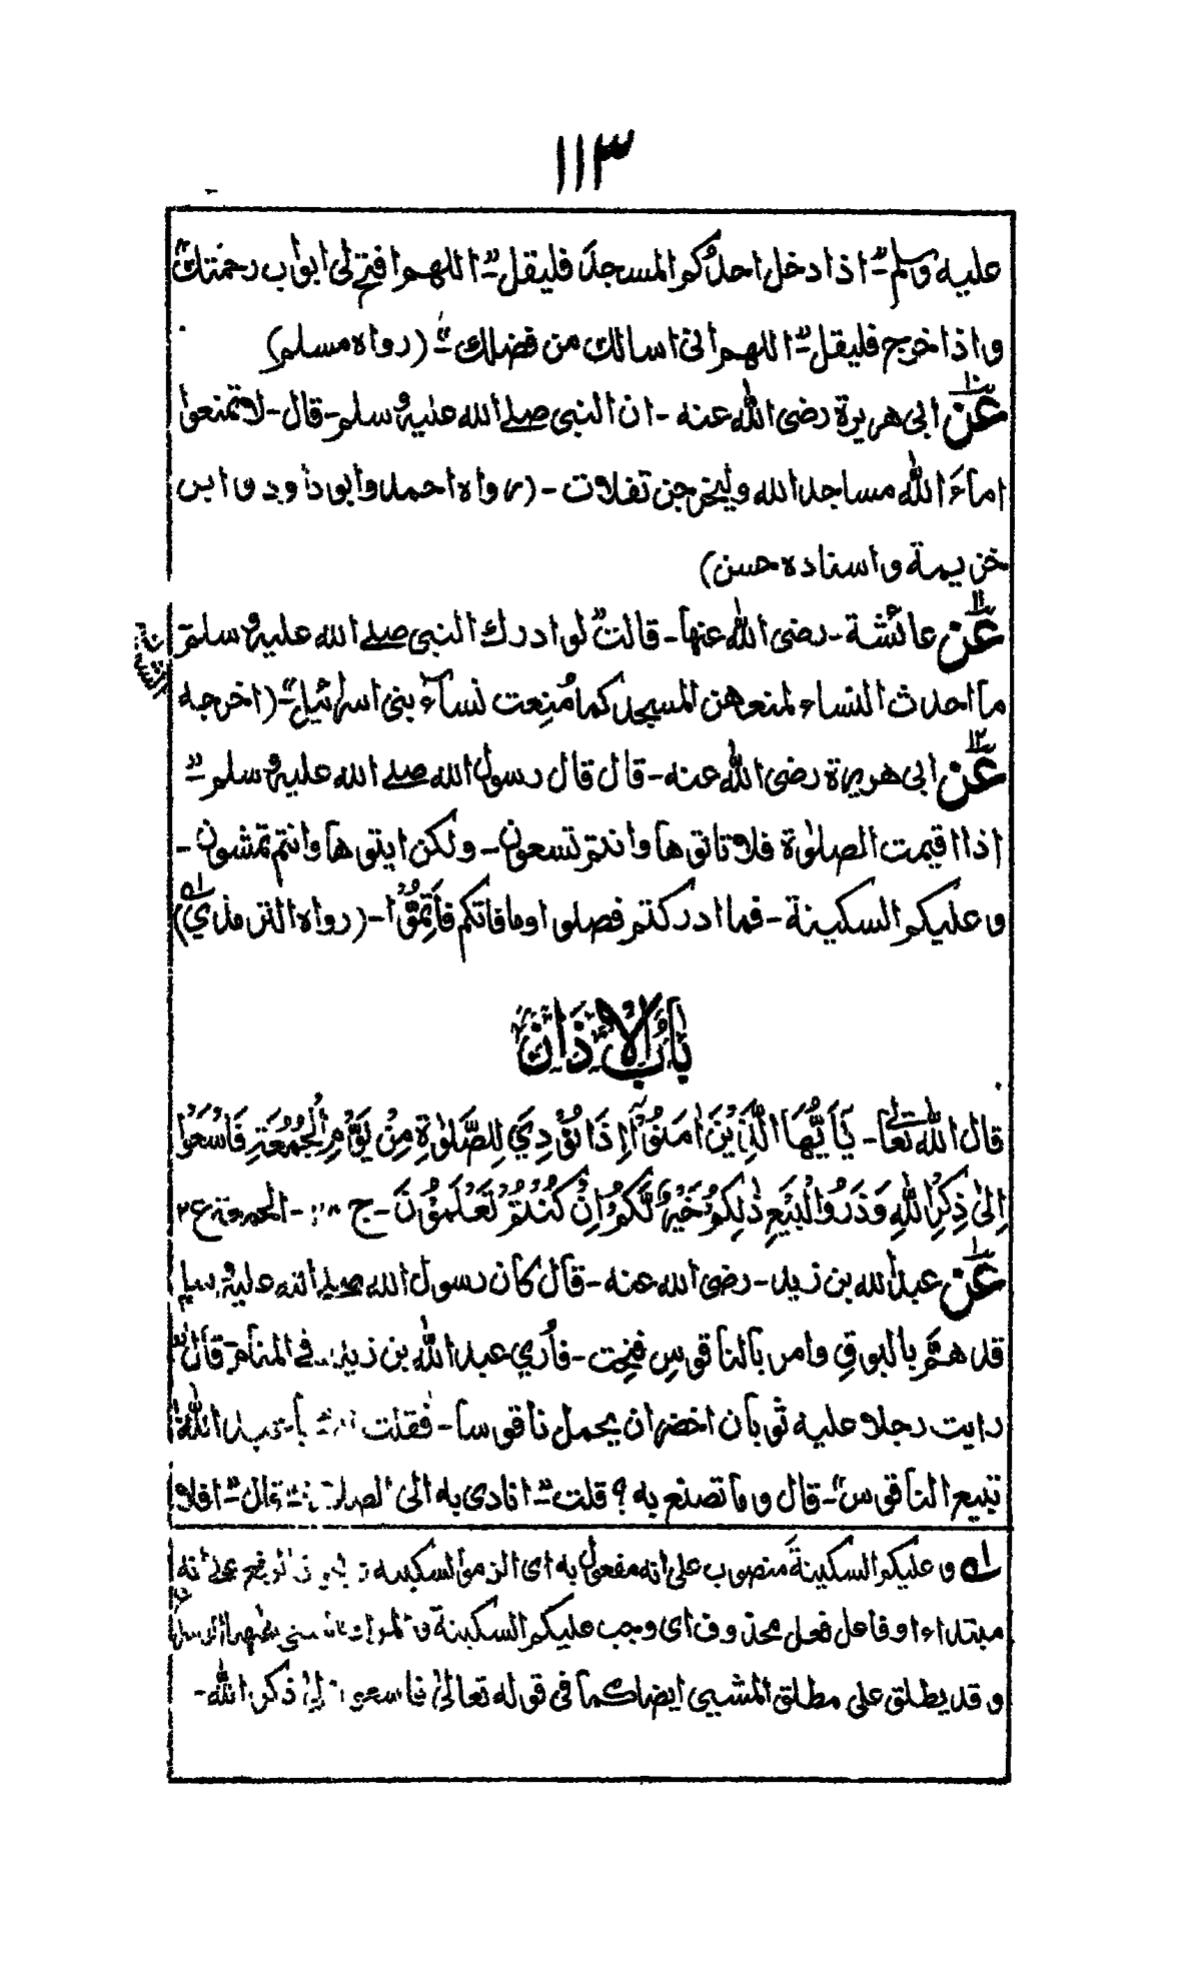 ١١٣
عليه وسلم۔" اذا دخل احدكم المسجد فليقل۔" اللهم افتح لى ابواب رحمتك"
واذا خرج فليقل۔" اللهم انى اسالك من فضلك"۔ (رواه مسلم)
عن ١٠ ابى هريرة رضى الله عنه - ان النبى صلے الله عليه وسلم - قال - لا تمنعوا
اماءَ الله مساجد الله وليخرجن تفلات - (رواه احمد وابو داود و ابن
خزيمة واسناده حسن)
عن ١١ عائشة - رضى الله عنها - قالت" لو ادرك النبى صلے الله عليه وسلم
ما احدث النساء لمنعهن المسجد كما مُنِعت نسآء بنى اسرائيل"۔ (اخرجه
الشيخان
عن ١٢ ابى هريرة رضى الله عنه - قال قال رسول الله صلے الله عليه وسلم۔"
اذا اقيمت الصلوٰة فلا تاتوها وانتم تسعون - ولكن ايتوها وانتم تمشون -
وعليكم السكينة - فما ادركتم فصلوا وما فاتكم فَاَتِمُّوْا - (رواه الترمذي) لـه
بَابُ الْاَذَانِ
قال الله تعالىٰ - يٰٓاَيُّهَا الَّذِيْنَ اٰمَنُوْٓا اِذَا نُوْدِيَ لِلصَّلٰوةِ مِنْ يَّوْمِ الْجُمُعَةِ فَاسْعَوْا
اِلىٰ ذِكْرِ اللّٰهِ وَذَرُوا الْبَيْعِ ذٰلِكُمْ خَيْرٌ لَّكُمْ اِنْ كُنْتُمْ تَعْلَمُوْنَ - ج ٢٨ - الجمعة ع ٢
عن ١ عبد الله بن زيد - رضى الله عنه - قال كان رسول الله صلے الله عليه وسلم
قد هَمَّ بالبوقِ وامر بالناقوسِ فنحِت - فاُري عبد الله بن زيد فى المنام - قال"
رايت رجلا عليه ثوبان اخضران يحمل ناقوسا - فقلت له يا عبد الله
تبيع الناقوس"۔ قال وما تصنع به؟ قلت۔" انادى به الى الصلوٰة قال۔" افلا
لـه وعليكم السكينةَ منصوب على انه مفعول به اى الزموا السكينة الرفع على انه
مبتداء او فاعل فعل محذوف اى وجب عليكم السكينة
وقد يطلق على مطلق المشيى ايضا كما فى قوله تعالىٰ فاسعوا اِلىٰ ذكر الله -